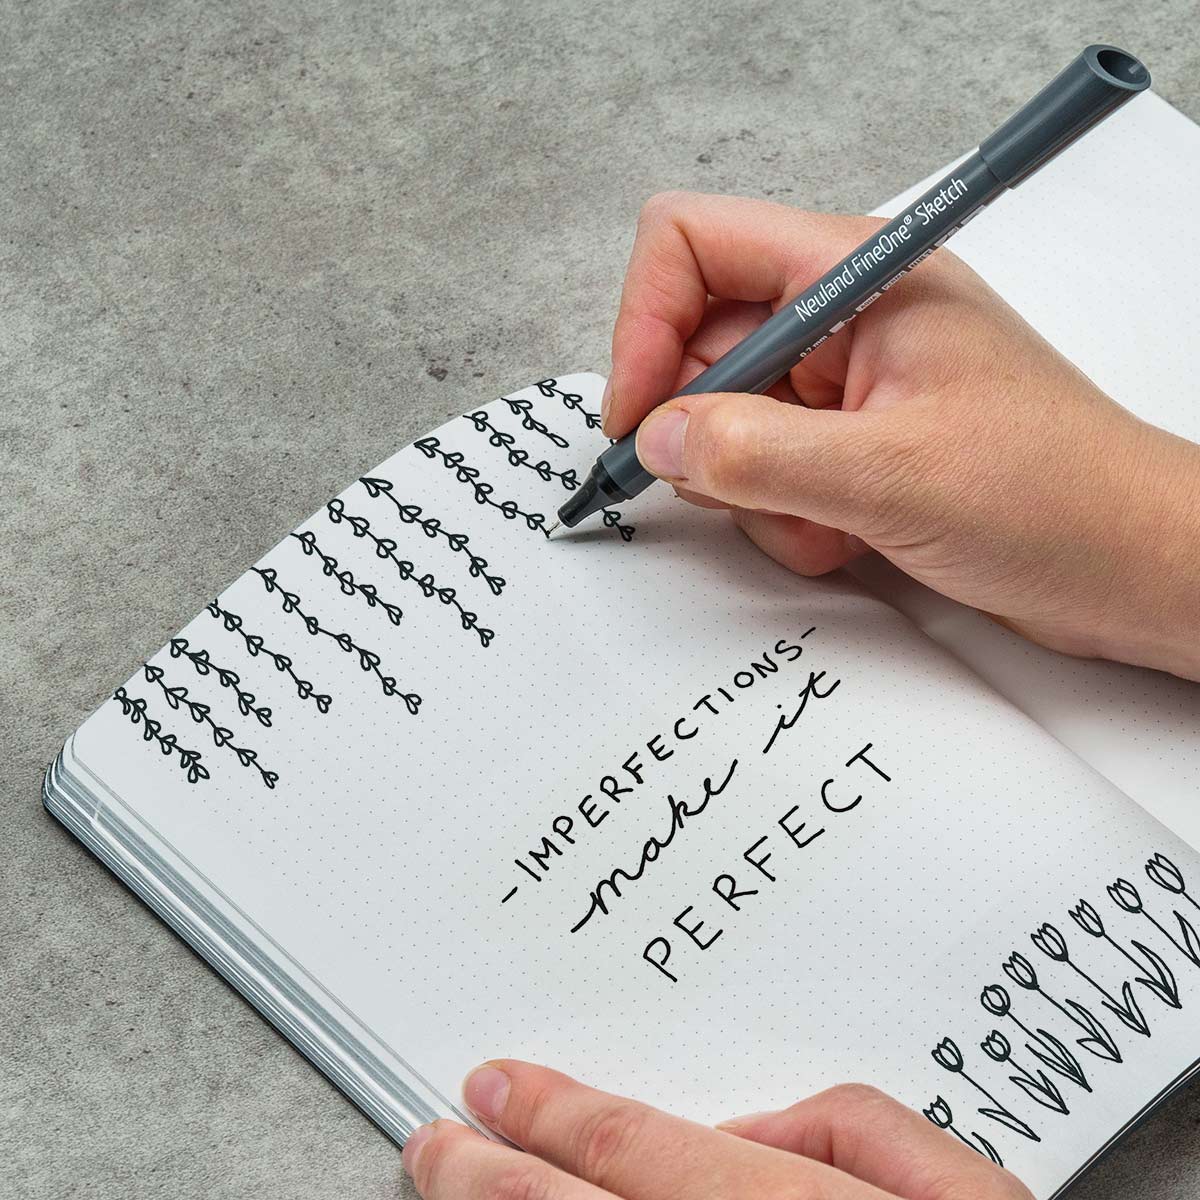 Neuland FineOne® Sketch
-IMPERFECTIONS-
make it
PERFECT